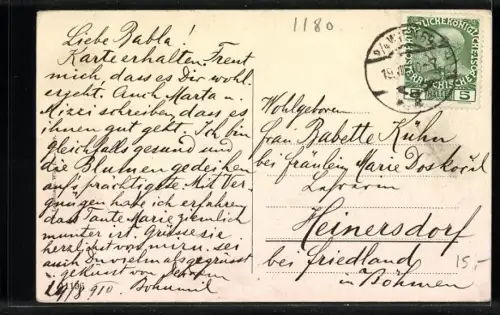 1180
Liebe Babla!
Karte erhalten. Freut
mich, dass es Dir wohl
ergeht. Auch Marta u.
Mizzi schreiben, dass es
ihnen gut geht. Ich bin
gleichfalls gesund und
die Blumen gedeihen
auf's prächtigste. Mit Ver-
gnügen habe ich erfahren,
dass Tante Marie ziemlich
munter ist. Grüsse sie
herzlichst von mir u. sei
auch Du vielmals gegrüsst
u. geküsst von Deinem
19/8 910 Bohumil
Wohlgeboren
Frau Babette Kühn
bei Fräulein Marie
Heinersdorf
bei Friedland
in Böhmen
15,-
5 5